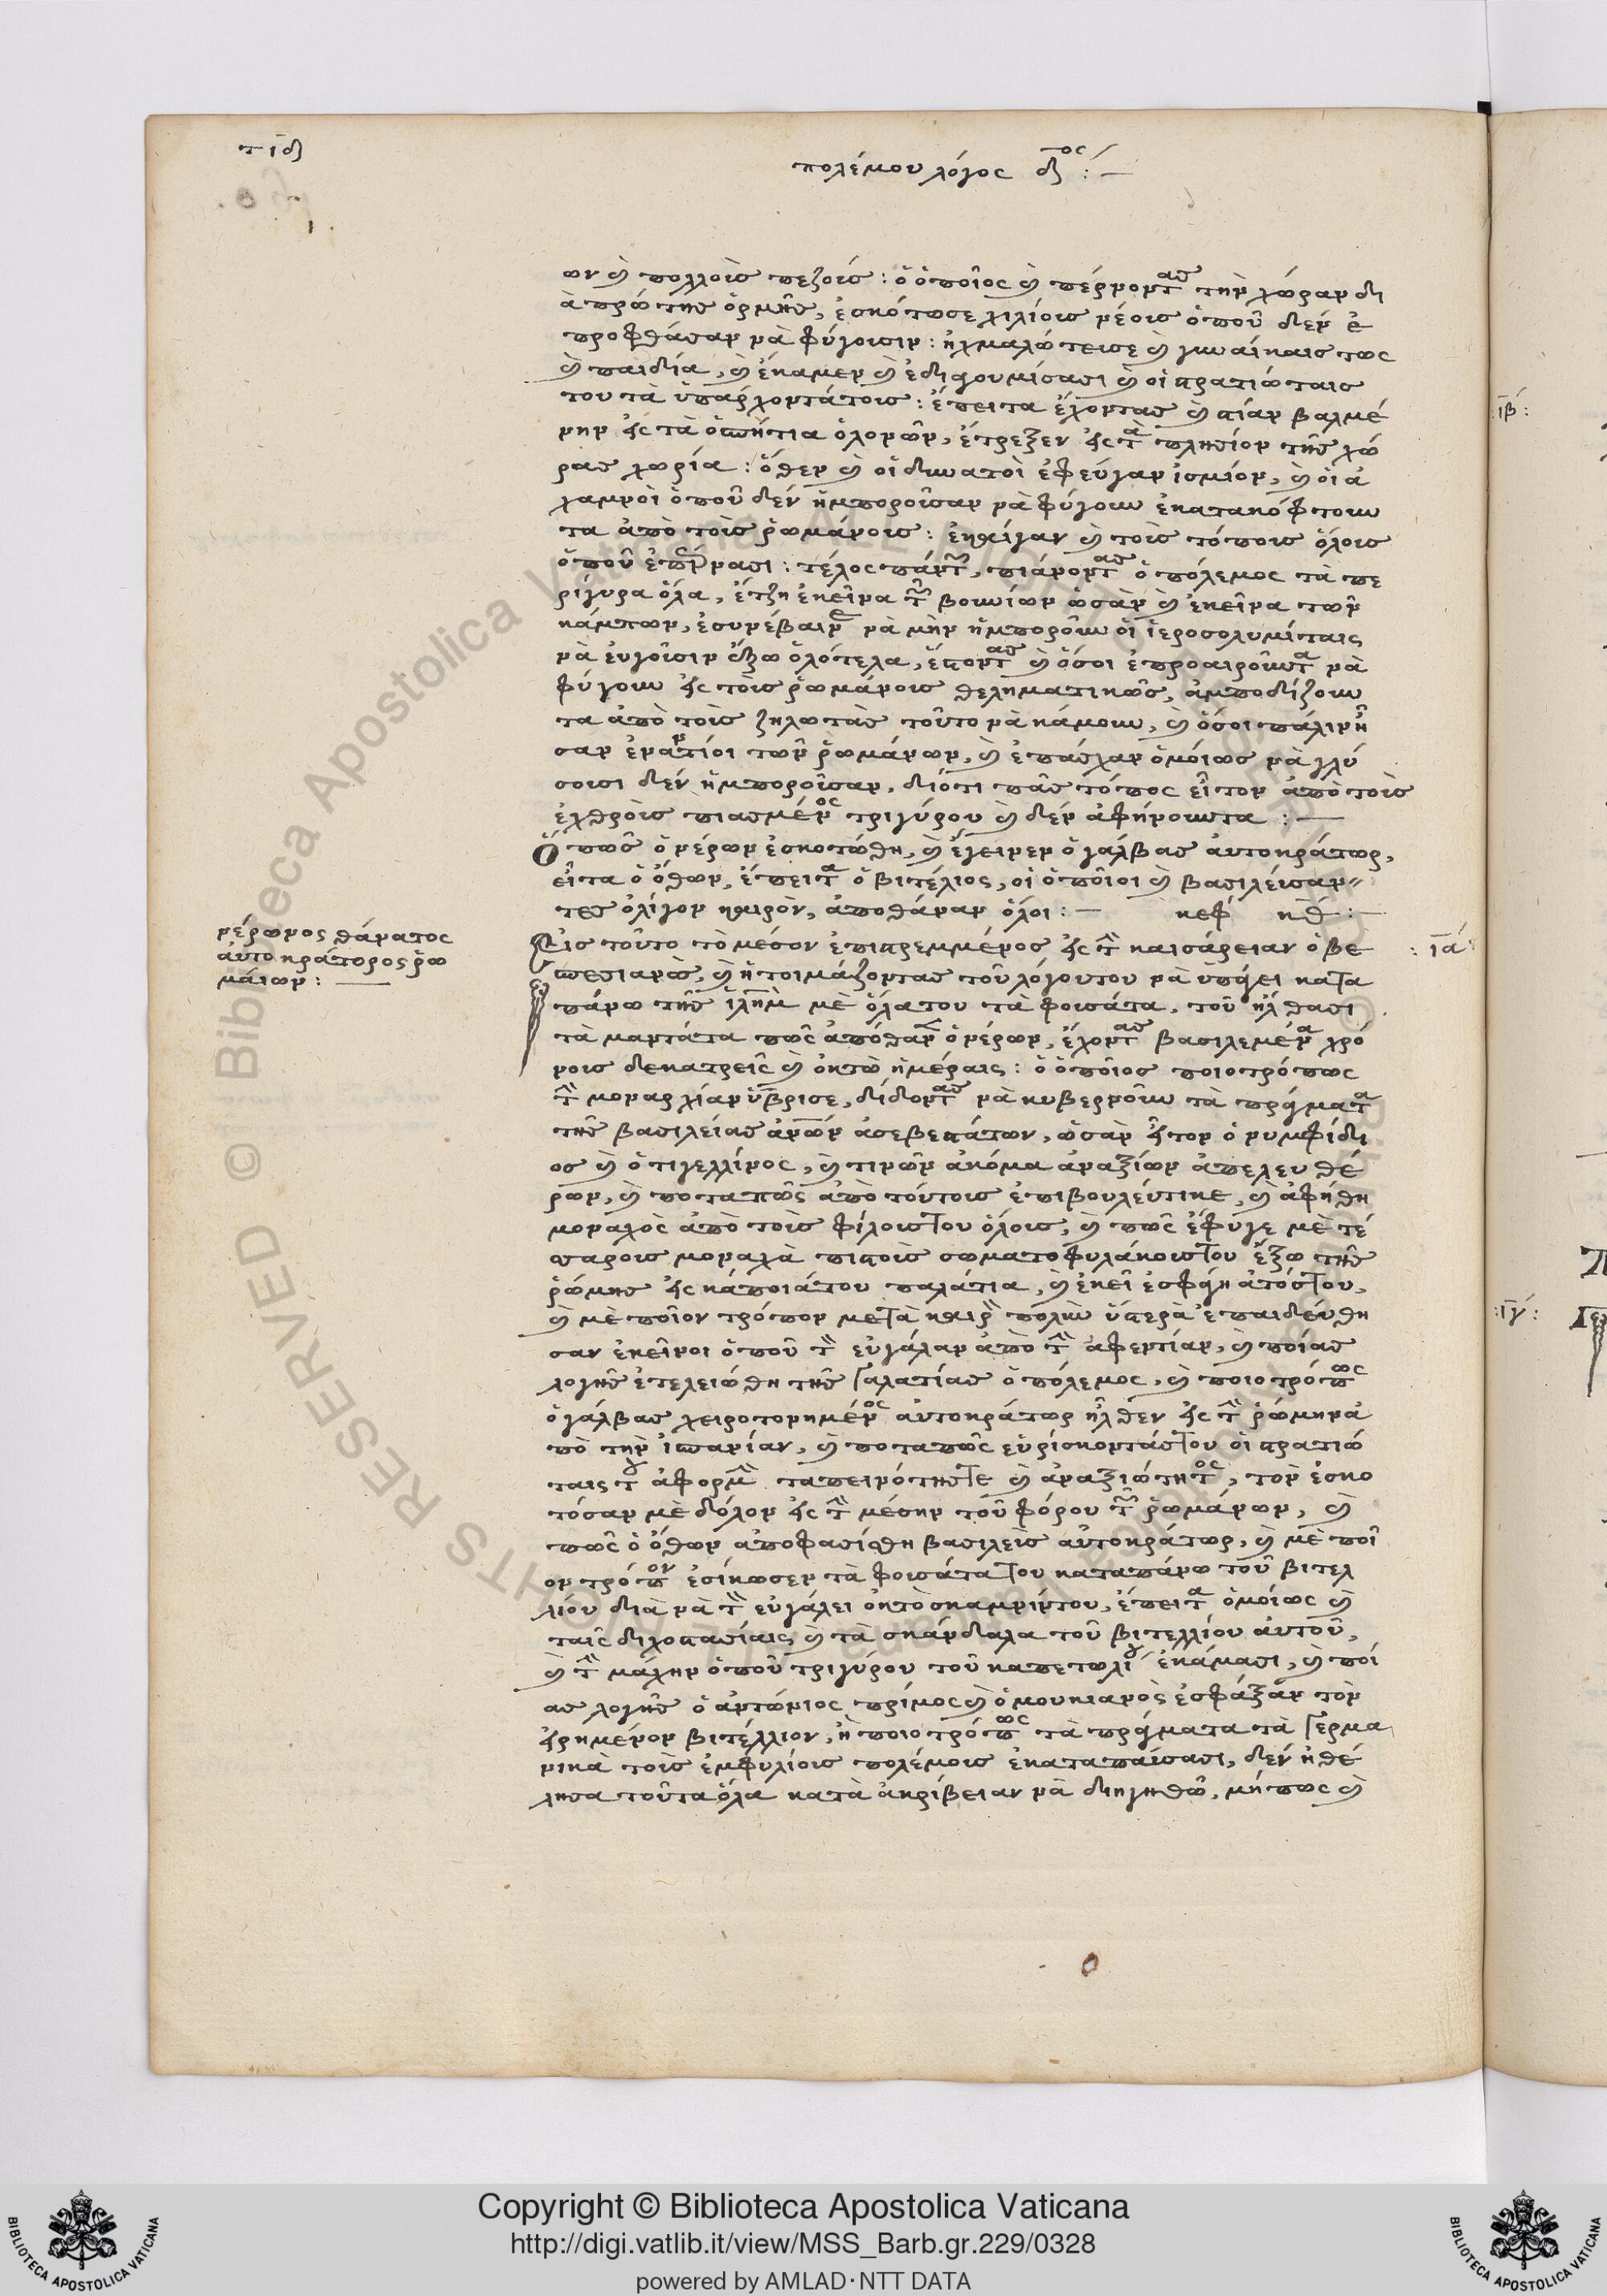 τιδ
πολέμου λόγος δ^(ος) :—
ων καὶ πολλοὶς πεζοίς : ὁ ὁποῖος καὶ πέρνοντας τὴν χώραν δι
ὰ πρώτης ὁρμῆς, ἐσκότωσε χιλίοις νέοις ὁποῦ δεν ἐ
προφθάσαν νὰ φύγοισιν : ἠχμαλώτεισε καὶ γυναίκαις τως
καὶ παιδία, καὶ ἔκαμεν καὶ ἐδιαγουμίσασι καὶ οἱ στρατιώταις
του τὰ ὑπάρχοντάτοις : ἔπειτα ἔχοντας καὶ στίαν βαλμέ
νην εἰς τὰ ὁσπήτια ὁλονῶν, ἔτρεξεν εἰς τὰ πλησίον τῆς χώ
ρας χωρία : ὅθεν καὶ οἱ δυνατοὶ ἐφεύγαν ἰσμιόν, καὶ οἱ ἀ
χαμνοὶ ὁποῦ δεν ἠμποροῖσαν νὰ φύγουν ἐκατακόφτουν
τα ἀπὸ τοὶς ῥωμάνοις : ἐκαίγαν καὶ τοὶς τόποις ὅλοις
ὁποῦ ἐπέρνασι : τέλος πάντων, πιάνοντας ὁ πόλεμος τὰ πε
ρίγυρα ὅλα, ἔτζη ἐκεῖνα τῶν βουνίων ὡσὰν καὶ ἐκεῖνα τῶν
κάμπων, ἐσυνέβαινε νὰ μὴν ἠμποροῦν οἱ ἱεροσολυμίταις
νὰ εὐγοῖσιν ἔξω ὁλότελα, ἔστοντας καὶ ὅσοι ἐπροαιροῦντα νὰ
φύγουν εἰς τοὶς ῥωμάνοις θεληματικῶς, ἀμποδίζουν
τα ἀπὸ τοὶς ζηλωτὰς τοῦτο νὰ κάμουν, καὶ ὅσοι πάλιν ἦ
σαν ἐναντίοι τῶν ῥωμάνων, καὶ ἐπάσχαν ὁμοίως νὰ γλύ
σουσι δεν ἠμποροῖσαν, διότι πᾶς τόπος εἶτον ἀπὸ τοὶς
ἐχθροὶς πιασμένος τριγύρου καὶ δεν ἀφήνουντα :—
Ὅπως ὁ νέρων ἐσκοτώθη, καὶ ἔγεινεν ὁ γάλβας αὐτοκράτωρ,
εἶτα ὁ ὄθων, ἔπειτα ὁ βιτέλιος, οἱ ὁποῖοι καὶ βασιλεύσαν
τες ὀλίγον καιρὸν, ἀποθάναν ὅλοι :— κεφ κθ :—
νέρωνος θάνατος
αὐτοκράτορος ῥω
μάιων : —
Εἰς τοῦτο τὸ μέσον ἐπιστρεμμένος εἰς τὴν καισάρειαν ὁ βε
σπεσιανὸς, καὶ ἡτοιμάζοντας τοῦ λόγουτου νὰ ὑπάγει κατα
πάνω τῆς ἱλημ μὲ ὅλατου τὰ φουσάτα, τοῦ ἦλθασι
τὰ μαντάτα πῶς ἀπόθανεν ὁ νέρων, ἔχοντας βασιλεμένα χρό
νοις δεκατρεῖς καὶ ὀκτὼ ἡμέραις : ὁ ὁποῖος ποιοτρόπως
τὴν μοναρχίαν ὕβρισε, δίδοντας νὰ κυβερνοῦν τὰ πράγματα
τῆς βασιλείας ἀνῶν ἀσεβεστάτων, ὡσὰν ἦτον ὁ νυμφίδι
ος καὶ ὁ τιγελλίνος, καὶ τινῶν ἀκόμα ἀναξίων ἀπελευθέ
ρων, καὶ ποταπῶς ἀπὸ τούτοις ἐπιβουλεύτικε, καὶ ἀφήθη
μοναχὸς ἀπὸ τοὶς φίλοιςτου ὅλοις, καὶ πῶς ἔφυγε μὲ τέ
σσαροις μοναχὰ πιστοὶς σωματοφυλάκοιςτου ἔξω τῆς
ῥώμης εἰς κάποιάτου παλάτια, καὶ ἐκεῖ ἐσφάγη ἀτόςτου,
καὶ μὲ ποῖον τρόπον μετὰ καιρὸν πολὺν ὕστερὰ ἐπαιδεύθη
σαν ἐκεῖνοι ὁποῦ τὸν εὐγάλαν ἀπὸ τὴν ἀφεντίαν, καὶ ποίας
λογῆς ἐτελειώθη τῆς γαλατίας ὁ πόλεμος, καὶ ποιοτρόπως
ὁ γάλβας χειροτονημένος αὐτοκράτωρ ἦλθεν εἰς τὴν ῥώμην ἀ
πὸ τὴν ἰσπανίαν, καὶ ποταπῶς εὑρίσκοντάςτου οἱ στρατιώ
ταις τοῦ ἀφορμὴν ταπεινότητςτε καὶ ἀναξιότητος, τὸν ἐσκο
τόσαν μὲ δόλον εἰς τὴν μέσην τοῦ φόρου τῶν ῥωμάνων, καὶ
πῶς ὁ ὄθων ἀποφασίσθη βασιλεὶς αὐτοκράτωρ, καὶ μὲ ποῖ
ον τρόπον ἐσίκωσεν τὰ φουσάτατου καταπάνω τοῦ βιτελ
λίου διὰ νὰ τὸν εὐγάλει ὀκτὸ σκαμνίντου, ἔπειτα ὁμοίως καὶ
ταῖς διχοστασίαις καὶ τὰ σκάνδαλα τοῦ βιτελλίου αὐτοῦ,
καὶ τὴν μάχην ὁποῦ τριγύρου τοῦ καπετωλίου ἐκάμασι, καὶ ποί
ας λογῆς ὁ ἀντώνιος πρίμος καὶ ὁ μουκιανὸς ἐσφάξαν τὸν
εἰρημένον βιτέλλιον, ἢ ποιοτρόπως τὰ πράγματα τὰ γερμα
νικὰ τοὶς ἐμφυλίοις πολέμοις ἐκαταπαύσασι, δεν ἠθέ
λησα τοῦτα ὅλα κατὰ ἀκρίβειαν νὰ διηγηθῶ, μήπως καὶ
: ια
: ιβ :
: ιγ :
Copyright © Biblioteca Apostolica Vaticana
http://digi.vatlib.it/view/MSS_Barb.gr.229/0328
powered by AMLAD·NTT DATA
BIBLIOTECA APOSTOLICA VATICANA
BIBLIOTECA APOSTOLICA VATICANA